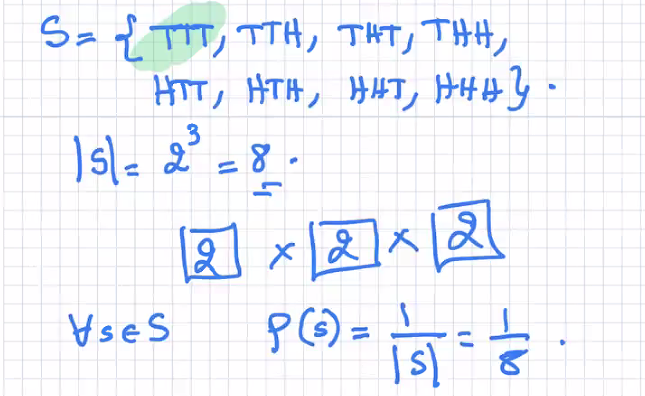 S = { TTT, TTH, THT, THH,
HTT, HTH, HHT, HHH } .
|S| = 2³ = 8 .
2 × 2 × 2
∀s∈S P(s) = 1/|S| = 1/8 .